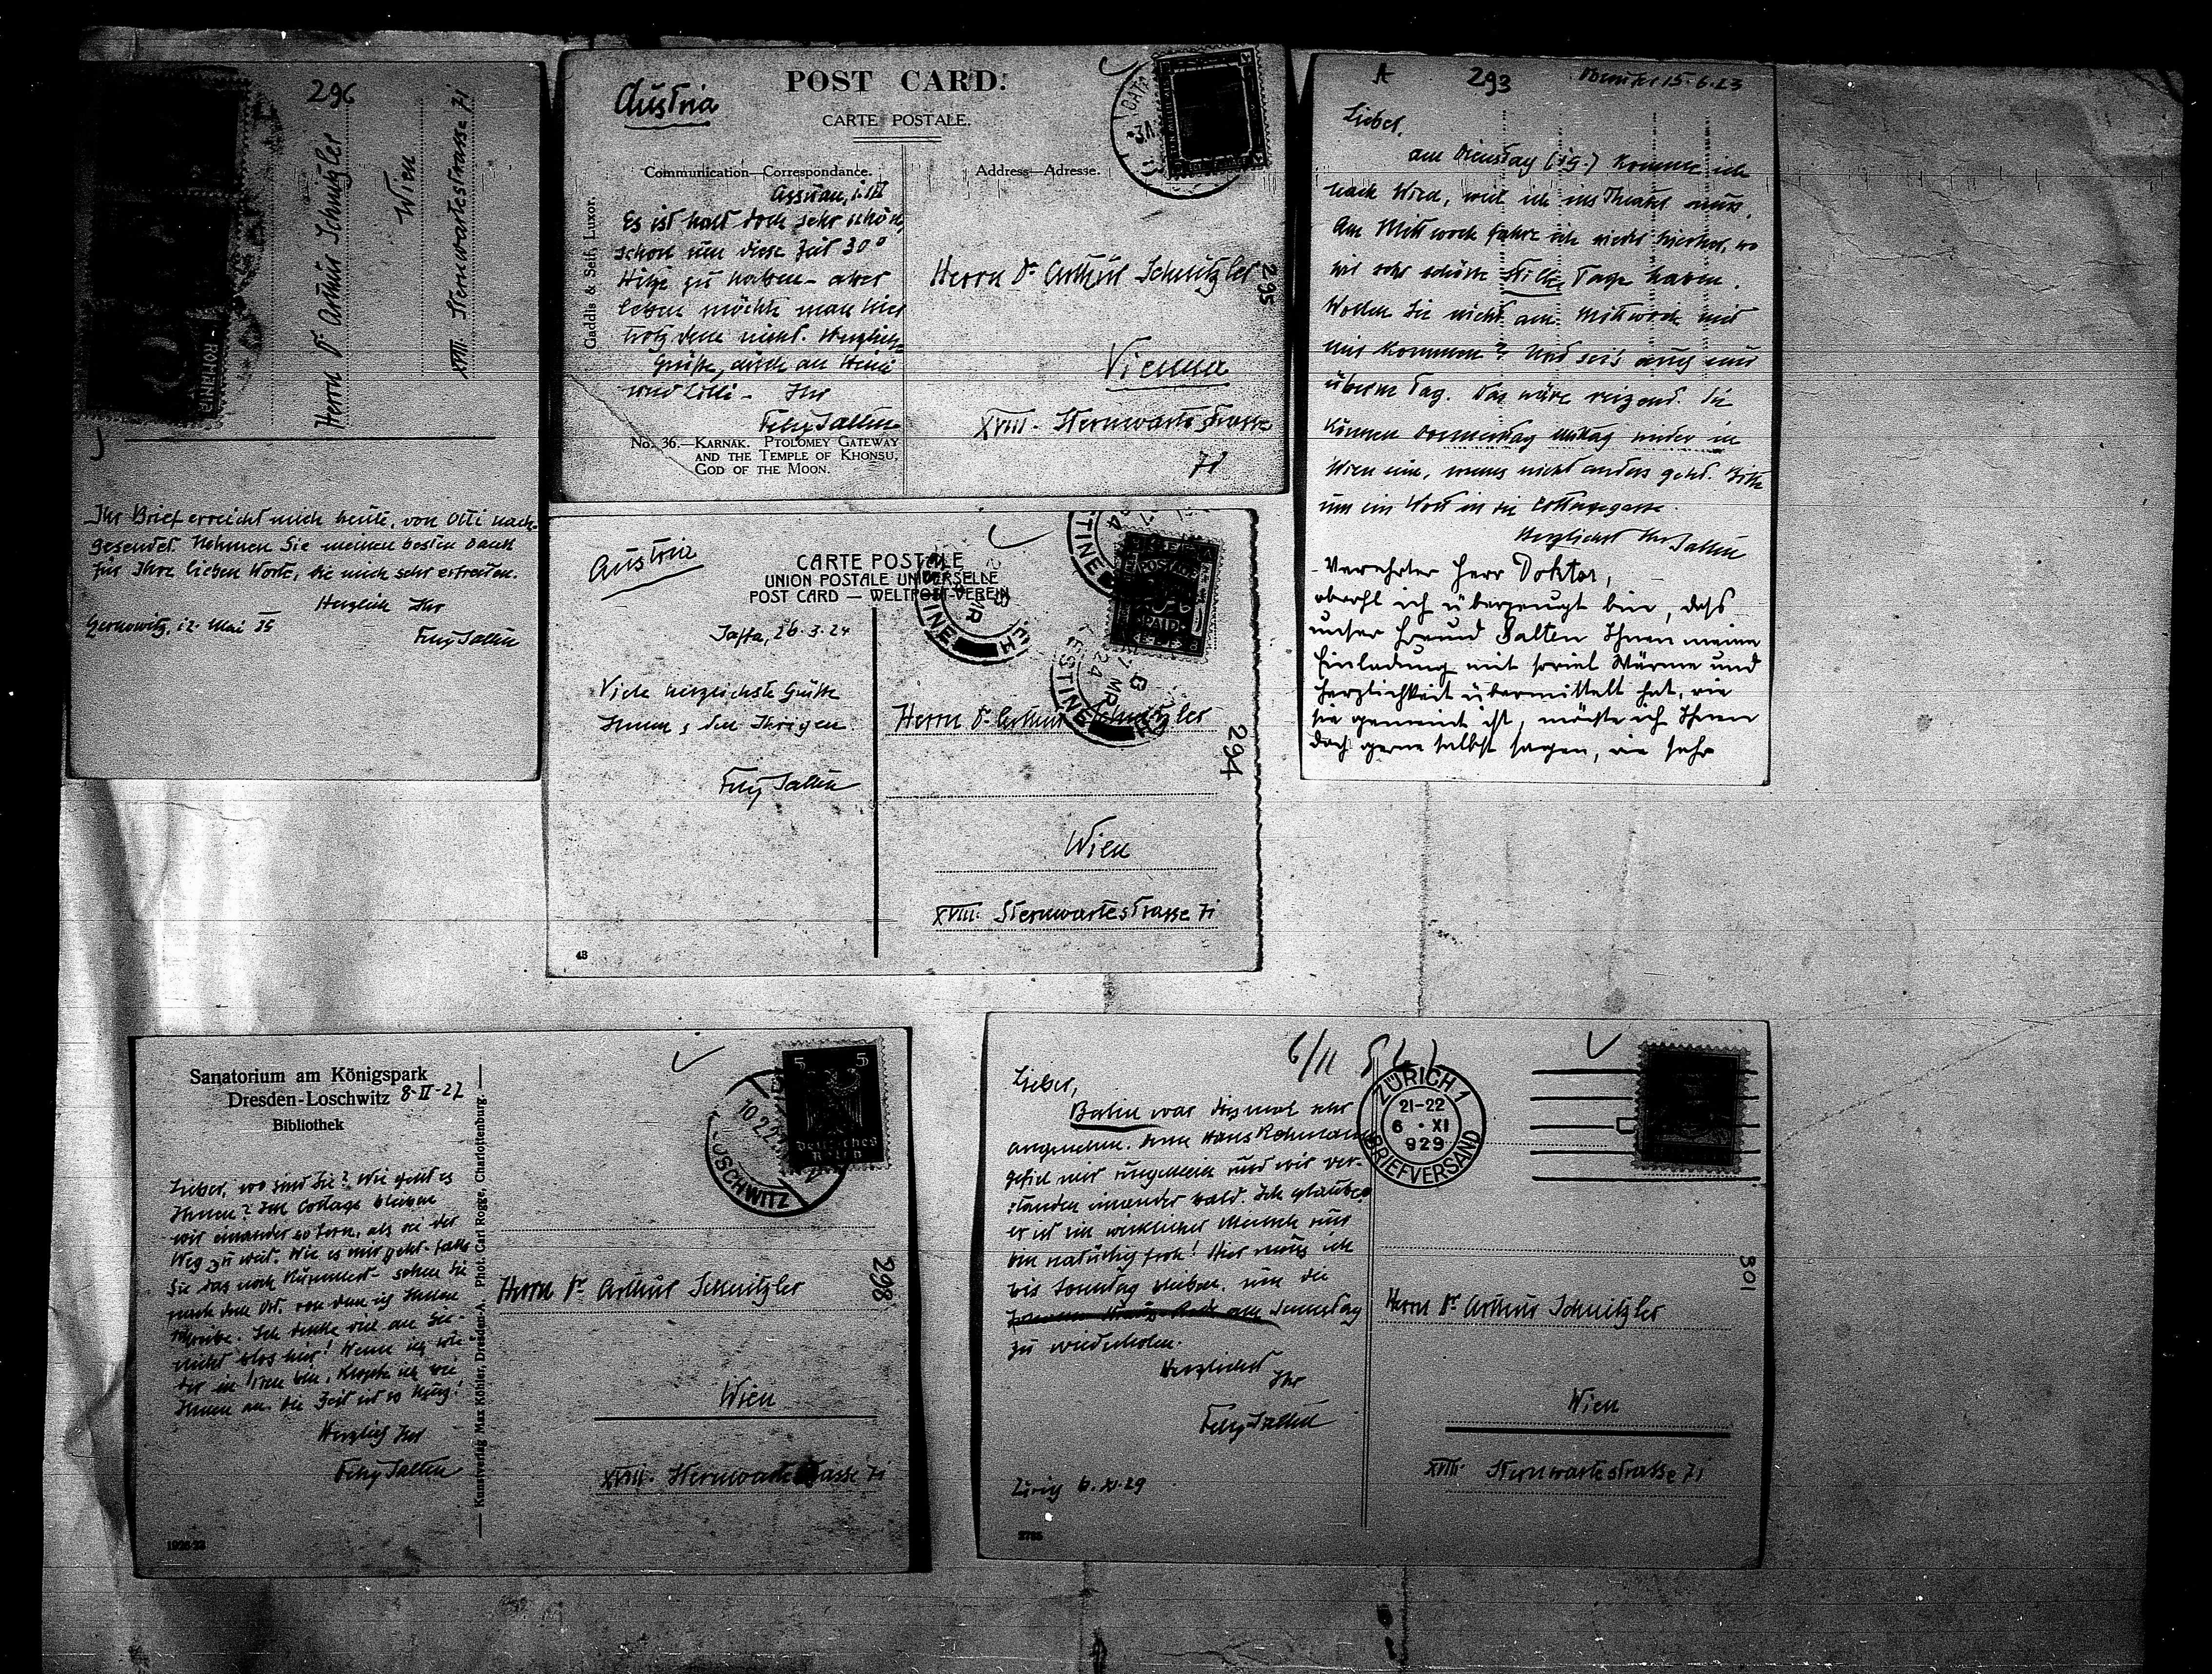 296
Herrn Dr Arthur Schnitzler
Wien
XVIII. Sternwartestrasse 71
Ihr Brief erreicht mich heute, von Otti nach-
gesendet. Nehmen Sie meinen besten Dank
für Ihre lieben Worte, die mich sehr erfreuten.
Herzlich Ihr
Czernowitz, 12. Mai 25
Felix Salten
POST CARD.
CARTE POSTALE.
Austria
Communication—Correspondance.
Address—Adresse.
Gaddis & Seif, Luxor.
Assuan,
Es ist halt doch sehr schön,
schon um diese Zeit 30°
Hitze zu haben – aber
leben möchte man hier
trotzdem nicht. Herzliche
Grüße, auch an Heini
und Lilli – Ihr
Felix Salten
No. 36.—KARNAK. PTOLOMEY GATEWAY
AND THE TEMPLE OF KHONSU,
GOD OF THE MOON.
Herrn Dr Arthur Schnitzler
295
Vienna
XVIII. Sternwarte Strasse
71
A
293
15.6.23
Lieber,
am Dienstag (19.) komme ich
nach Wien, weil ich ins Theater muss.
Am Mittwoch fahre ich wieder hierher, wo
wir sehr schöne stille Tage haben.
Wollen Sie nicht am Mittwoch mit
mir kommen? Und sei's auch nur
überm Tag. Das wäre reizend. Sie
können Donnerstag Mittag wieder in
Wien sein, wenns nicht anders geht. Bitte
um ein Wort in die Cottagegasse.
Herzlichst Ihr Salten
Verehrter Herr Doktor,
obwohl ich überzeugt bin, dass
unser Freund Salten Ihnen meine
Einladung mit soviel Wärme und
Herzlichkeit übermittelt hat, wie
sie gemeint ist, möchte ich Ihnen
doch gerne selbst sagen, wie sehr
Austria
CARTE POSTALE
UNION POSTALE UNIVERSELLE
POST CARD — WELTPOST-VEREIN
Jaffa, 26.3.24
Viele herzlichste Grüße
Ihnen & den Ihrigen
Felix Salten
POSTAGE
PAID
Herrn Dr Arthur Schnitzler
294
Wien
XVIII. Sternwartestrasse 71
43
Sanatorium am Königspark
Dresden-Loschwitz 8-II-27
Bibliothek
Lieber, wo sind Sie? Wie geht es
Ihnen? Im Cottage bleiben
wir einander so fern, als sei der
Weg zu weit. Wie es mir geht – falls
Sie das noch kümmert – sehen Sie
nach dem Ort, von dem ich Ihnen
schreibe. Ich denke viel an Sie –
nicht blos hier! Wenn ich wie-
der in Wien bin, klopfe ich bei
Ihnen an. Die Zeit ist so kurz!
Herzlich Ihr
Felix Salten
Kunstverlag Max Köhler, Dresden-A. Phot. Carl Rogge, Charlottenburg.
5 5
Deutsches
Reich
LOSCHWITZ
298
Herrn Dr Arthur Schnitzler
Wien
XVIII. Sternwartestrasse 71
1926 23
6/11
Lieber,
Berlin war diesmal sehr
angenehm. Hans Rehmann
gefiel mir ungemein und wir ver-
standen einander bald. Ich glaube,
er ist ein wirklicher Mensch und
bin natürlich froh! Hier muß ich
bis Sonntag bleiben, um die
am Samstag
zu wiederholen.
Herzlichst
Ihr
Felix Salten
Zürich 6.XI.29
ZÜRICH 1
21-22
6 · XI
929
BRIEFVERSAND
301
Herrn Dr Arthur Schnitzler
Wien
XVIII. Sternwartestrasse 71